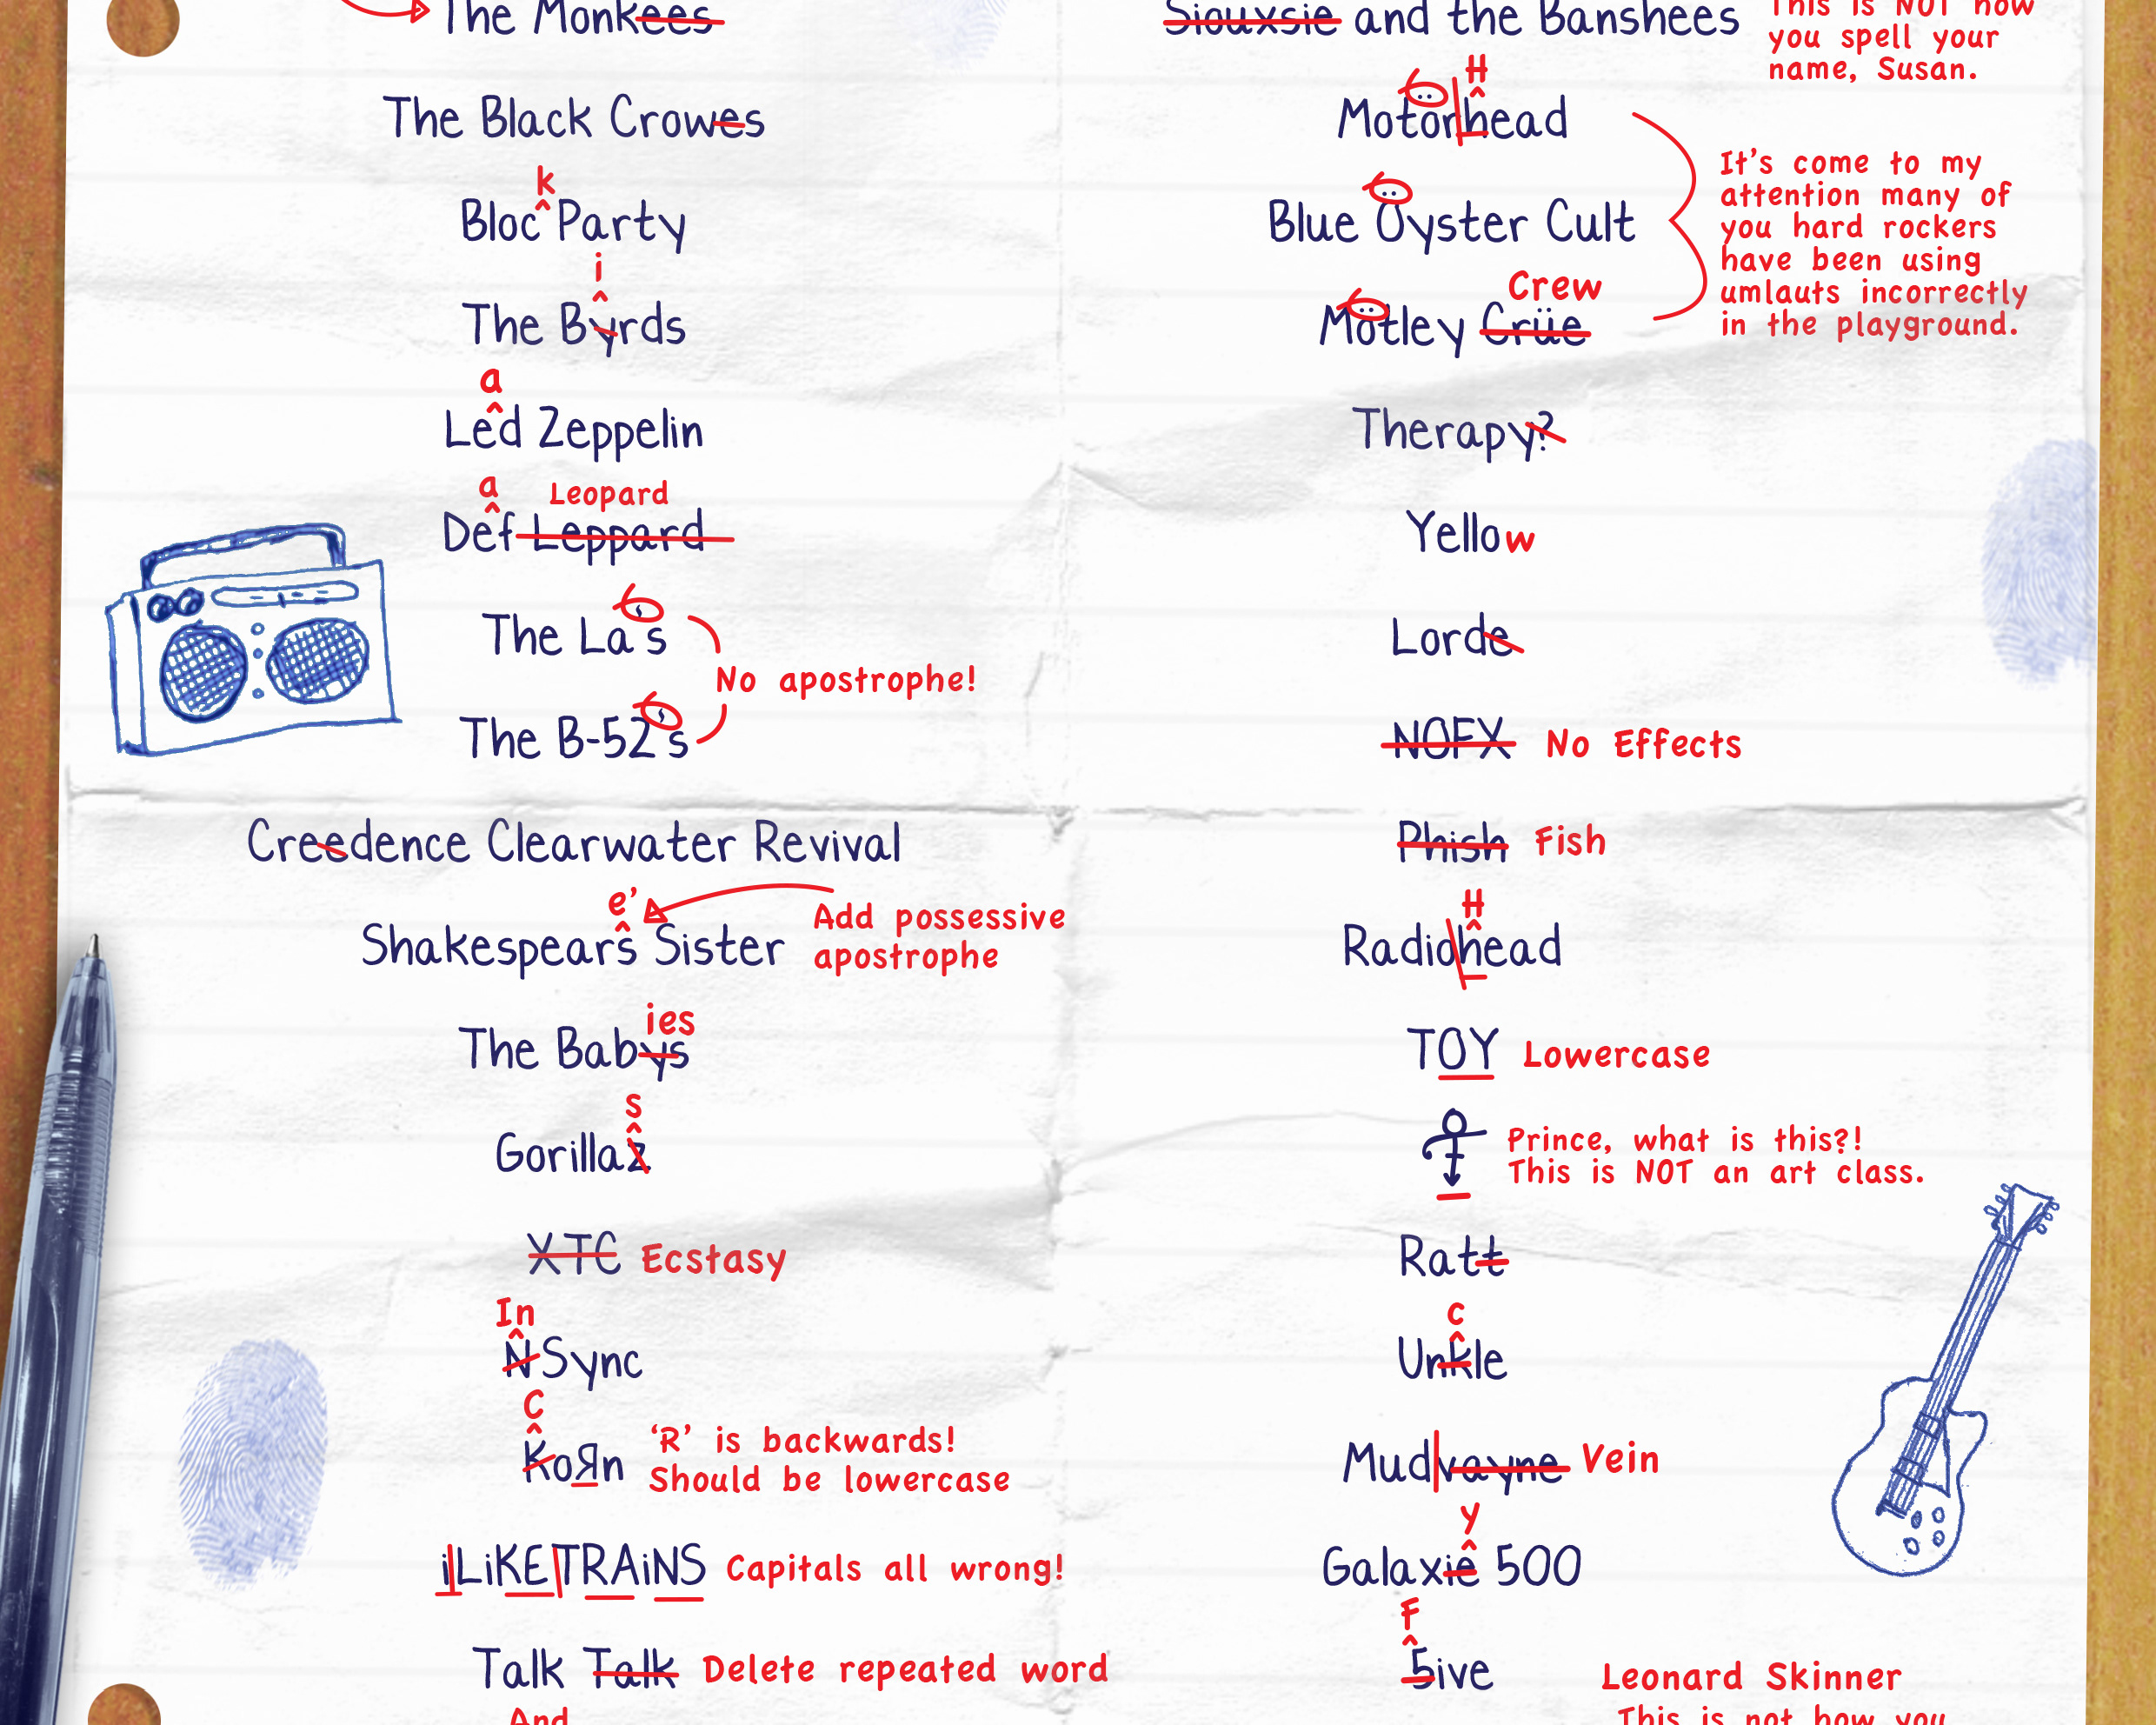 The Monkees
The Black Crowes
k
Bloc Party
i
The Byrds
a
Led Zeppelin
a Leopard
Def Leppard
The La's
No apostrophe!
The B-52's
Creedence Clearwater Revival
e'
Shakespears Sister
Add possessive
apostrophe
ies
The Babys
s
Gorillaz
XTC Ecstasy
In
N Sync
C
KoЯn
'R' is backwards!
Should be lowercase
iLiKETRAiNS Capitals all wrong!
Talk Talk Delete repeated word
And
Siouxsie and the Banshees
This is NOT how
you spell your
name, Susan.
H
Motörhead
Blue Öyster Cult
Crew
Mötley Crüe
It's come to my
attention many of
you hard rockers
have been using
umlauts incorrectly
in the playground.
Therapy?
Yellow
Lorde
NOFX No Effects
Phish Fish
H
Radiohead
TOY Lowercase
Prince, what is this?!
This is NOT an art class.
Ratt
c
Unkle
Mudvayne Vein
y
Galaxie 500
F
5ive
Leonard Skinner
This is not how you